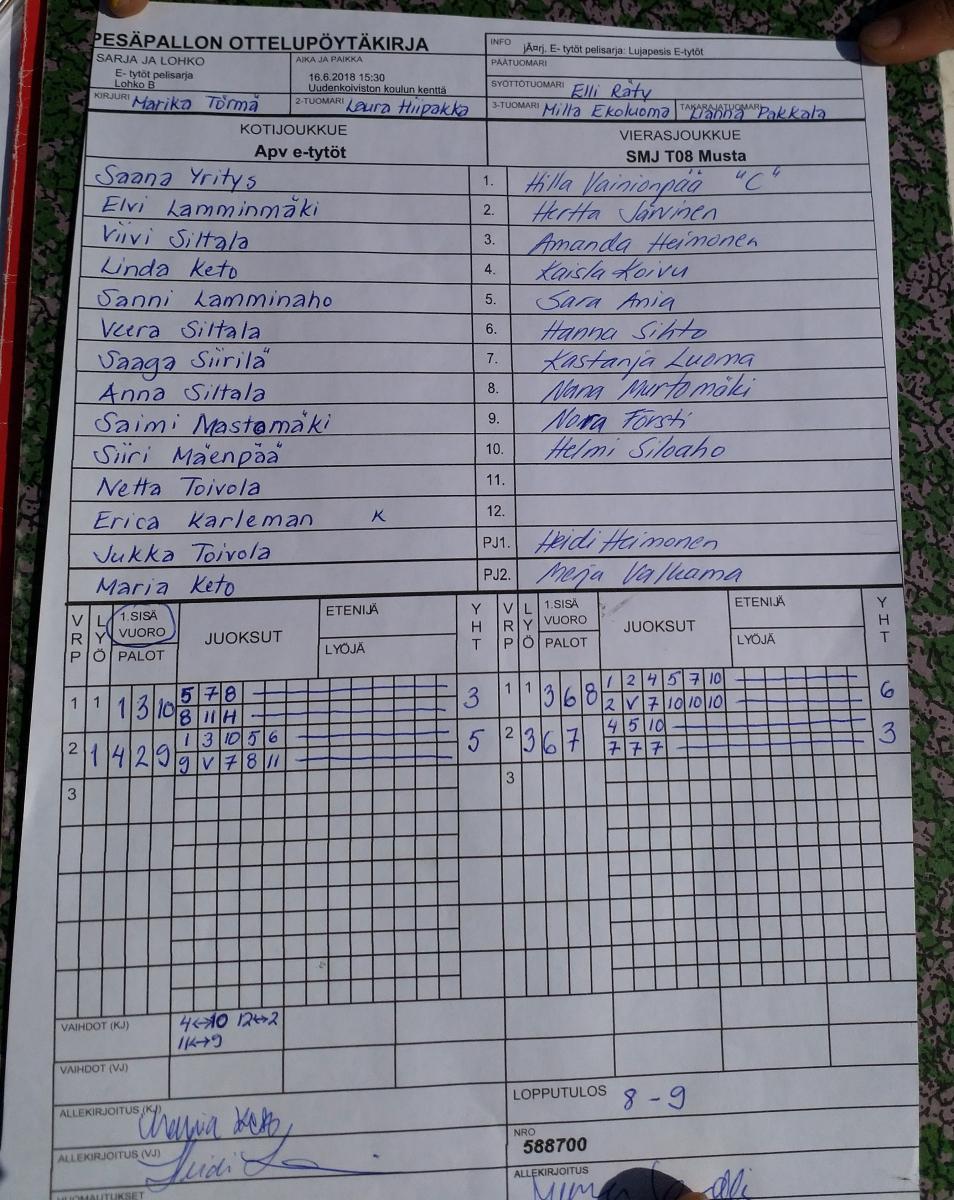 PESÄPALLON OTTELUPÖYTÄKIRJA
INFO jÃ¤rj. E- tytöt pelisarja: Lujapesis E-tytöt
SARJA JA LOHKO
E- tytöt pelisarja
Lohko B
AIKA JA PAIKKA
16.6.2018 15:30
Uudenkoiviston koulun kenttä
PÄÄTUOMARI
SYÖTTÖTUOMARI Elli Räty
KIRJURI Marika Törmä
2-TUOMARI Laura Hiipakka
3-TUOMARI Milla Ekoluoma
TAKARAJATUOMARI Lianna Pakkala
KOTIJOUKKUE
Apv e-tytöt
VIERASJOUKKUE
SMJ T08 Musta
Saana Yritys 1. Hilla Vainionpää "C"
Elvi Lamminmäki 2. Hertta Järvinen
Viivi Siltala 3. Amanda Heimonen
Linda Keto 4. Kaisla Koivu
Sanni Lamminaho 5. Sara Ania
Veera Siltala 6. Hanna Sihto
Saaga Siirilä 7. Kastanja Luoma
Anna Siltala 8. Nana Murtomäki
Saimi Mastomäki 9. Nora Försti
Siiri Mäenpää 10. Helmi Siloaho
Netta Toivola 11.
Erica Karleman K 12.
Jukka Toivola PJ1. Heidi Heimonen
Maria Keto PJ2. Merja Valkama
VRP LYÖ 1.SISÄ VUORO PALOT JUOKSUT ETENIJÄ LYÖJÄ YHT VRP LYÖ 1.SISÄ VUORO PALOT JUOKSUT ETENIJÄ LYÖJÄ YHT
1 1 1 3 10 5 7 8 3 1 1 3 6 8 1 2 4 5 7 10 6
8 11 H 2 V 7 10 10 10
2 1 4 2 9 1 3 10 5 6 5 2 3 6 7 4 5 10 3
9 V 7 8 11 7 7 7
3 3
VAIHDOT (KJ) 4↔10 12↔2
11↔9
VAIHDOT (VJ)
LOPPUTULOS 8 - 9
ALLEKIRJOITUS (KJ) Maria Keto
NRO
588700
ALLEKIRJOITUS (VJ) Heidi
ALLEKIRJOITUS
HUOMAUTUKSET